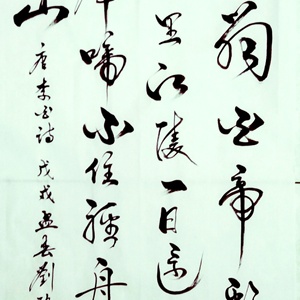 辞白帝彩
里江陵一日还
啼不住轻舟
山
唐李白诗戊戌孟春刘